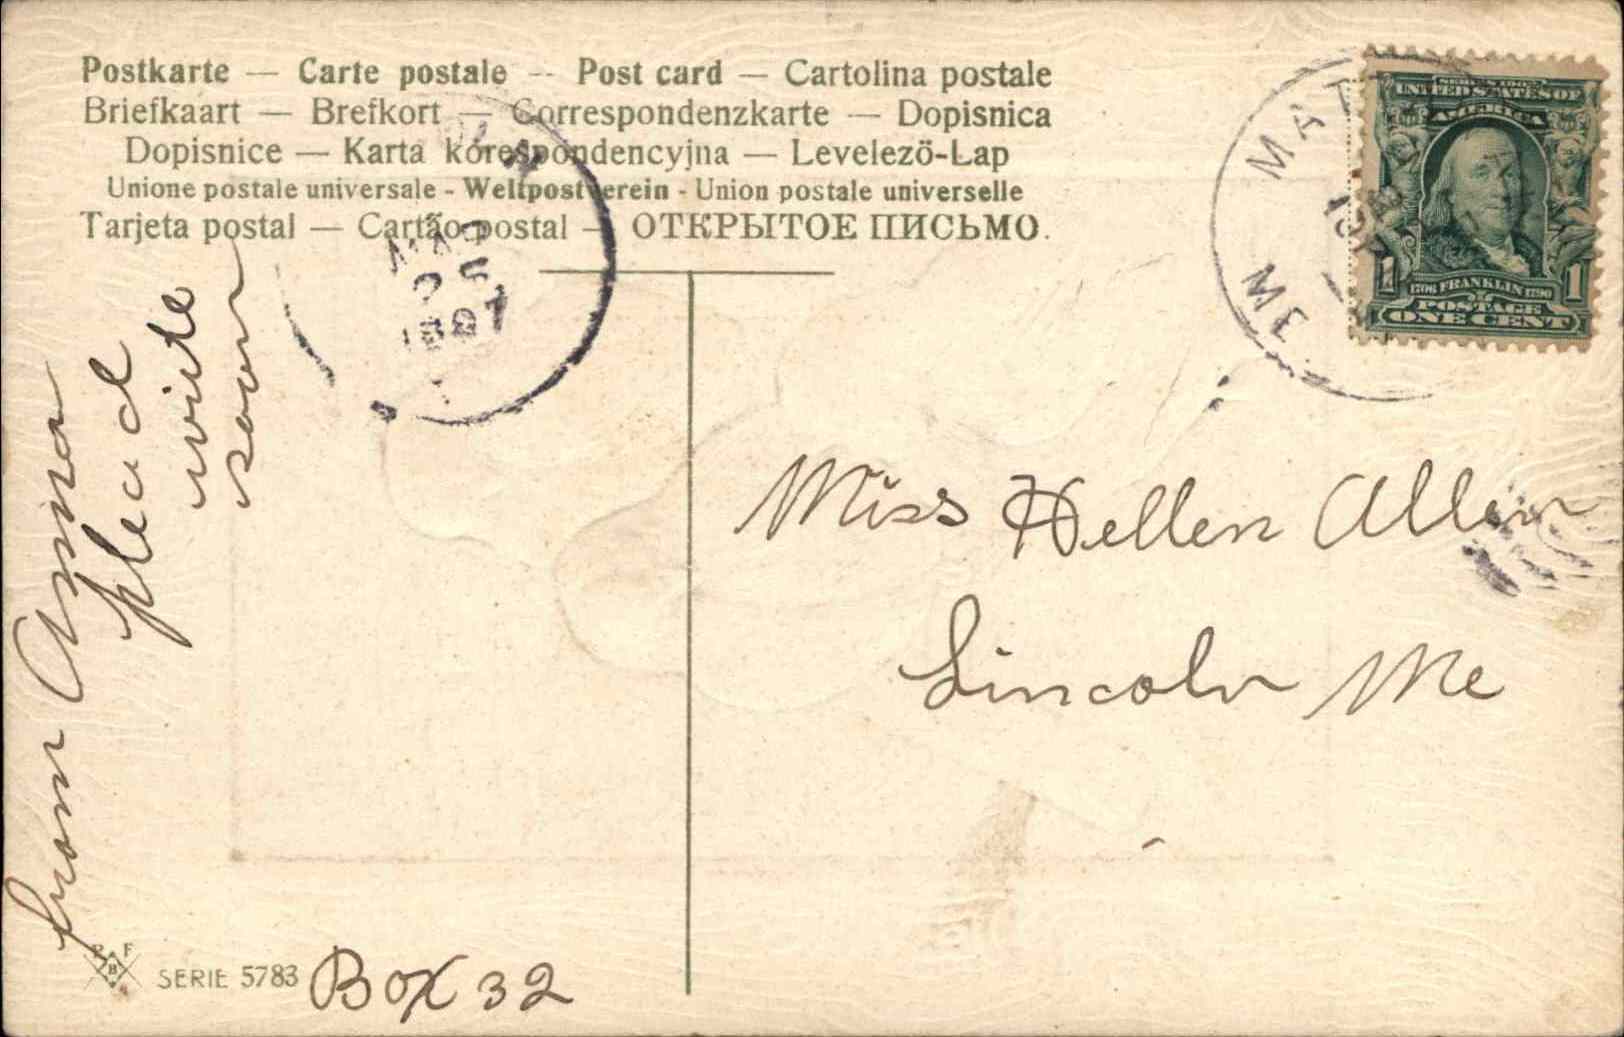 Postkarte — Carte postale — Post card — Cartolina postale
Briefkaart — Brefkort — Correspondenzkarte — Dopisnica
Dopisnice — Karta korespondencyjna — Levelezö-Lap
Unione postale universale - Weltpostverein - Union postale universelle
Tarjeta postal — Cartão postal — ОТКРЫТОЕ ПИСЬМО.
MAR
25
1907
ME
SERIES 1902
UNITED STATES OF
AMERICA
1706 FRANKLIN 1790
1 1
POSTAGE
ONE CENT
Miss Hellen Allen
Lincoln Me
from Anna
plead
write
soon
P F
B
SERIE 5783
Box 32